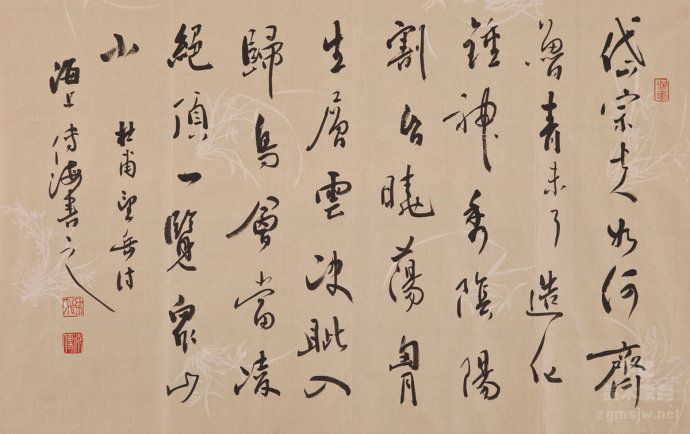 岱宗夫如何齊
魯青未了造化
鍾神秀陰陽
割昏曉蕩胷
生層雲決眦入
歸鳥會當凌
絕頂一覽眾山
小
杜甫望岳诗
海上海書之
zgmsjw.net